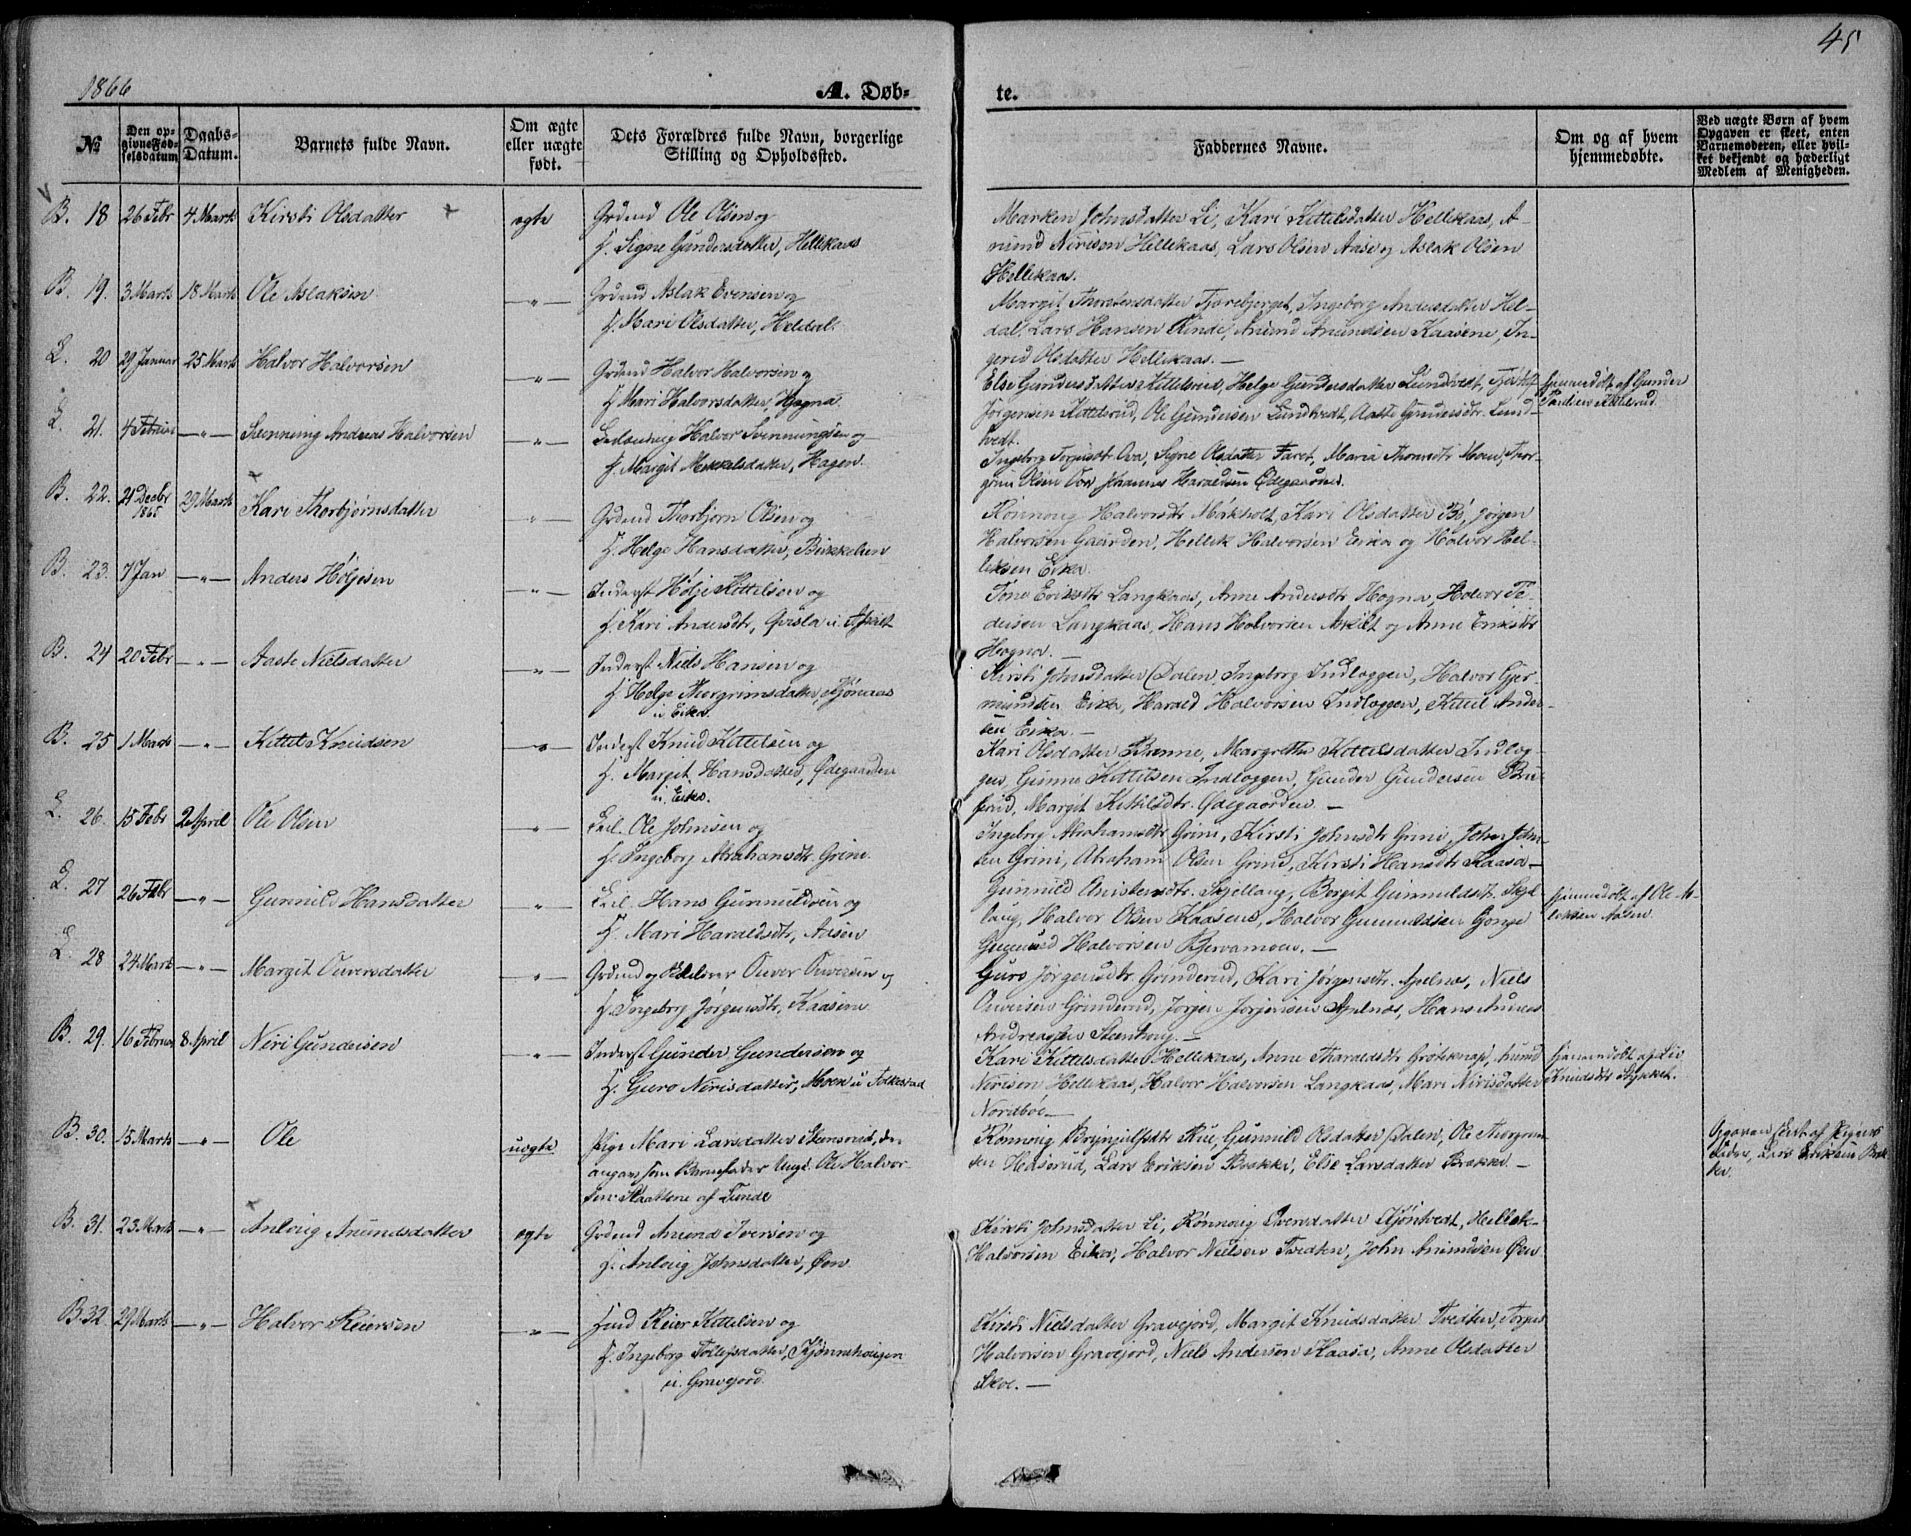 45
1866
A. Døb-
te.
№
Den op-
givne Fød-
selsdatum
Daabs-
Datum.
Barnets fulde Navn.
Om ægte
eller uægte
født.
Dets Forældres fulde Navn, borgerlige
Stilling og Opholdssted.
Faddernes Navne.
Om og af hvem
hjemmedøbte.
Ved uægte Børn af hvem
Opgaven er skeet, enten
Barnemoderen, eller hvil-
ket bekjendt og hæderligt
Medlem af Menigheden.
B. 18 26 Febr 4 Marts Kirsti Olsdatter ægte Grdmd Ole Olsen og
H. Signe Gundersdatter, Hellekaas
Marken Johnsdatter Li, Kari Kittelsdatter Hellekaas, A-
mund Nirisen Hellekaas, Lars Olsen Aase og Aslak Olsen
Hellekaas.
B. 19. 3 Marts 18 Marts Ole Aslaksen —"— Grdmd Aslak Evensen og
H. Mari Olsdatter, Heldal.
Margit Thorstensdatter Tjærebjorget, Ingeborg Andersdatter Hel-
dal, Lars Hansen Rinde, Amund Amundsen Kaasene, In-
gerid Olsdatter Hellekaas. —
L. 20 29 Januar 25 Marts Halvor Halvorsen —"— Grdmd Halvor Halvorsen og
H. Mari Halvorsdatter, Hogna
Else Gundersdatter Kittelsrud, Helge Gundersdatter Lundtvedt,
Jørgensen Kittelsrud, Ole Gundersen Lundtvedt, Aaste Gundersdtr. Lund-
tvedt.
Hjemmedøbt af Gunder
Kittelsrud.
L. 21. 4 Februar —"— Svenning Andreas Halvorsen —"— Halvor Svenningsen og
H. Margit Mikkelsdatter, Hagen.
Ingeborg Torjusdt. Ova, Signe Olsdatter Faret, Maria Moen, Thor-
grim Olsen Ova, Johannes Haraldsen Ødegaarden.
B. 22. 21 Decbr
1865 29 Marts Kari Thorbjørnsdatter —"— Grdmd Thorbjørn Olsen og
H. Helge Hansdatter,
Rønnoug Halvorsdtr Mækholt, Kari Olsdatter Bø, Jørgen
Halvorsen Gaarden, Hellek Halvorsen Eika og Halvor Hel-
leksen Eika.
B. 23. 7 Jan —"— Anders Høljesen —"— Inderst Hølje Kittelsen og
H. Kari Andersdtr, Qvisla u.
Tone Eriksdtr Langkaas, Anne Andersdtr Hogna, Halvor Te-
Langkaas, Hans Halvorsen og Anne Eriksdtr
Hogna. —
B. 24 20 Febr —"— Aaste Nielsdatter —"— Inderst Niels Hansen og
H. Helge Thorgrimsdatter,
u. Eika.
Kirsti Johnsdatter Dalen, Ingeborg Indloggen, Halvor Ger-
mundsen Eika, Harald Halvorsen Indloggen, Kittel Ander-
sen Eika. —
B. 25 1 Marts —"— Kittel Knudsen —"— Inderst Knud Kittelsen og
H. Margit Hansdatter, Ødegaarden
u. Eika.
Kari Olsdatter Brenne, Margrethe Kittelsdatter Indlog-
gen, Gunne Kittelsen Indloggen, Gunder Gundersen
Margit Kittilsdtr. Ødegaarden. —
L. 26. 15 Febr 2 April Ole Olsen —"— Ole Johnsen og
H. Ingeborg Abrahamsdtr. Grini.
Ingeborg Abrahamsdtr Grini, Kirsti Johnsdtr Grini, John John-
sen Grini, Abraham Olsen Grini, Kirsti Hansdtr Kaasa —
L. 27 26 Febr —"— Gunnild Hansdatter —"— Hans Gunnuldsen og
H. Mari Haraldsdtr, Aasen
Gunnild Christensdtr. Skjellaug, Borgit Gunnuldsdt. Skjel-
laug, Halvor Olsen Kaasene, Halvor Gunnuldsen Gonge
Halvorsen Bjervamoen. —
Hjemmedøbt af Ole
Aasen.
L. 28 24 Marts —"— Margit Ouversdatter —"— Grdmd og Ouver Ouversen og
H. Ingeborg Jørgensdtr, Kaasene.
Guro Jørgensdtr Grinderud, Kari Jørgensdtr. Apelnæs, Niels
Ouversen Grinderud, Jørgen Jørgensen Apelnæs, Hans
Andreassen Steenhoug. —
B. 29. 16 Februar 8 April Niri Gundersen —"— Inderst Gunder Gundersen og
H. Guro Nirisdatter, Moen u. Folkestad
Kari Kittelsdatter Hellekaas, Anne Tharaldsdtr Grøteknap, Amund
Nirisen Hellekaas, Halvor Halvorsen Langkaas, Mari Nirisdatter
Nordbøe —
Hjemmedøbt af Liv
Knudsdtr Stykket.
B. 30. 15 Marts —"— Ole uægte Pige Mari Larsdatter Stensrud, der
angav som Barnefader Ungk. Ole Halvor-
sen Slaattene af Lunde
Rønnoug Brynjulfsdtr Rue, Gunnuld Olsdatter Dalen, Ole Thorgrim-
sen Haserud, Lars Eriksen Bakke, Else Larsdatter Bakke. —
Opgaven skeet af Pigens
Fader, Lars Eriksen Bak-
ke.
B. 31. 23 Marts —"— Anlaug Amundsdatter ægte Grdmd Amund Iversen og
H. Anlaug Johnsdatter, Øen
Kirsti Johnsdatter Li, Rønnoug Iversdatter Hellek
Halvorsen Eika, Halvor Nielsen Tvedten, John Amundsen Øen
B. 32. 29 Marts —"— Halvor Reiersen —"— Husmd Reier Kittelsen og
H. Ingeborg Tollefsdatter,
u. Gravejord.
Kirsti Nielsdatter Gravejord, Margit Knudsdatter Tvedten, Torjus
Halvorsen Gravejord, Niels Andersen Kaasa, Anne Olsdatter
Skoe. —